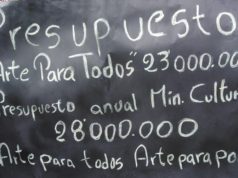 Presupuesto
"Arte Para Todos" 23000.00
Presupuesto anual Min. Cultur
28000.000
Arte para todos Arte para po